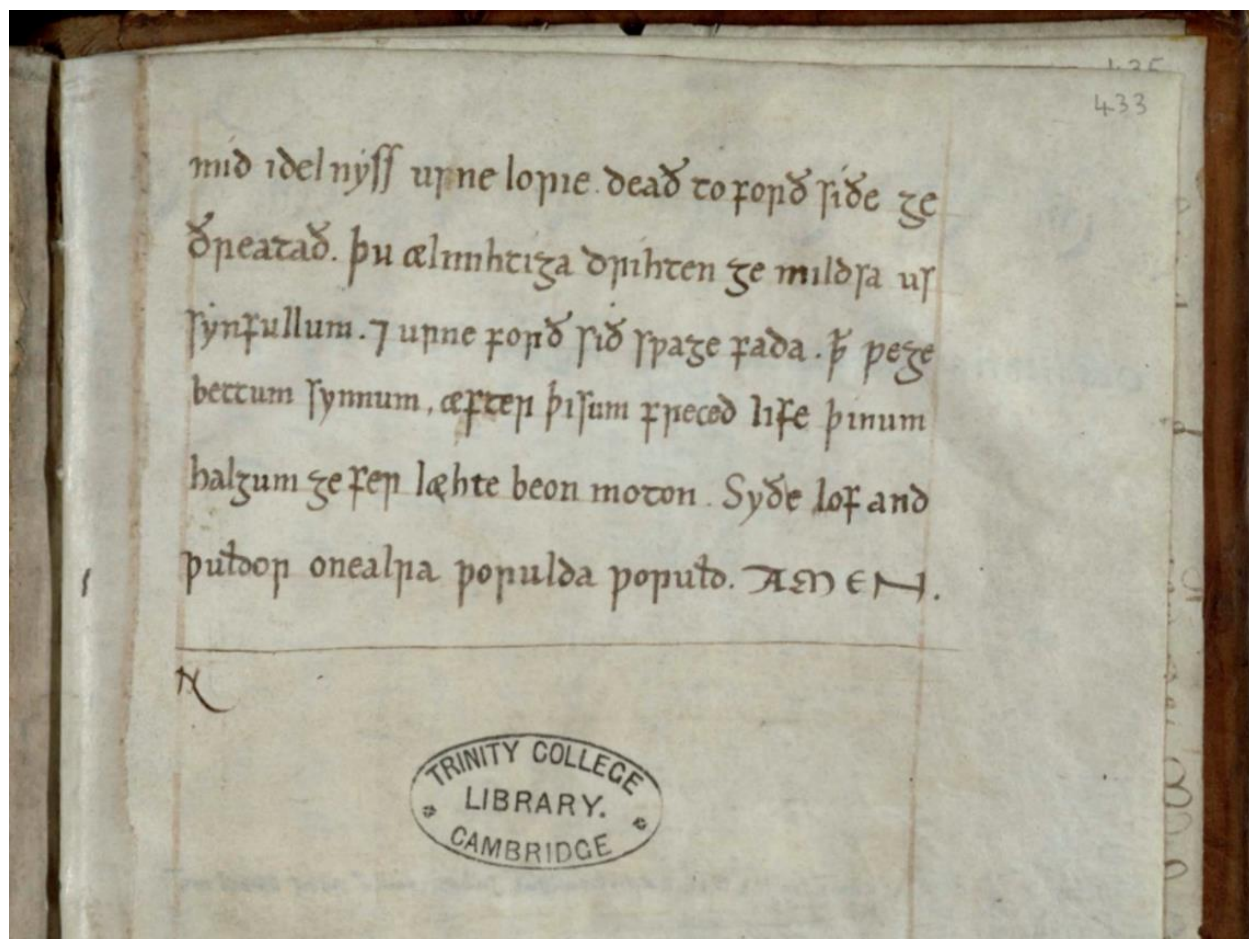 435
433
mid idelnyss urne lorie. deað to forð siðe ge
ðreatað. þu ælmihtiga drihten ge mildsa us
synfullum. ⁊ urne forð sið swage fada. ꝥ wege
bettum synnum, æfter þisum freced life þinum
halgum ge fer læhte beon moton. Syðe lof and
wułdor onealra worulda woruld. AMEN.
TRINITY COLLEGE
LIBRARY.
CAMBRIDGE